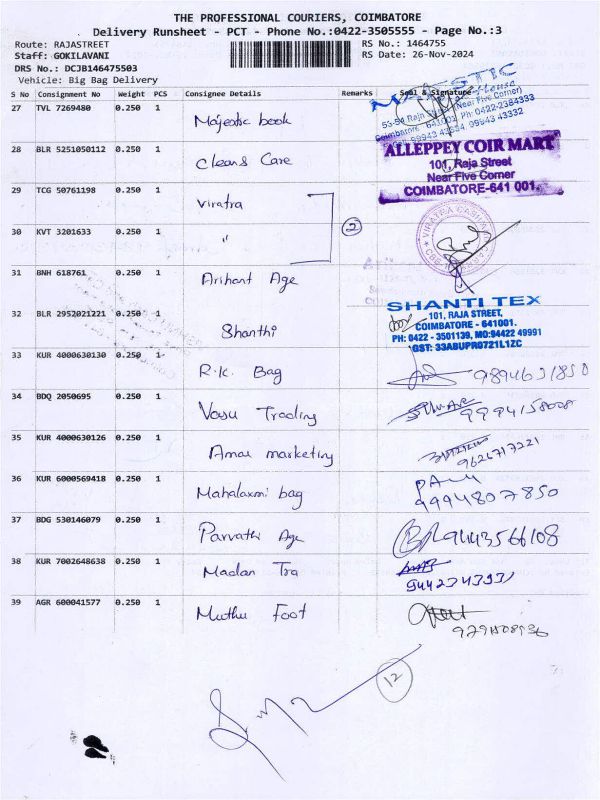 THE PROFESSIONAL COURIERS, COIMBATORE
Delivery Runsheet - PCT - Phone No.:0422-3505555 - Page No.:3
Route: RAJASTREET RS No.: 1464755
Staff: GOKILAVANI RS Date: 26-Nov-2024
DRS No.: DCJB146475503
Vehicle: Big Bag Delivery
S No Consignment No Weight PCS Consignee Details Remarks Seal & Signature
27 TVL 7269480 0.250 1 Majestic book
MAJESTIC
53-54 Raja (Near Five Corner)
Coimbatore 641001 Ph:0422-2384333
28 BLR 5251050112 0.250 1 Clean & Care
ALLEPPEY COIR MART
101, Raja Street
Near Five Corner
COIMBATORE-641 001.
29 TCG 50761198 0.250 1 Viratra
2
30 KVT 3201633 0.250 1 "
31 BNH 618761 0.250 1 Arihant Age
32 BLR 2952021221 0.250 1 Shanthi
SHANTI TEX
101, RAJA STREET,
COIMBATORE - 641001.
PH: 0422 - 3501139, MO:94422 49991
GST: 33ABUPR0721L1ZC
33 KUR 4000630130 0.250 1 R.K. Bag 9894631850
34 BDQ 2050695 0.250 1 Vasu Trading
35 KUR 4000630126 0.250 1 Amar marketing 9626717221
36 KUR 6000569418 0.250 1 Mahalaxmi bag
9994807850
37 BDG 530146079 0.250 1 Parvathi Age 9443566108
38 KUR 7002648638 0.250 1 Madan Tra
39 AGR 600041577 0.250 1 Muthu Foot
12